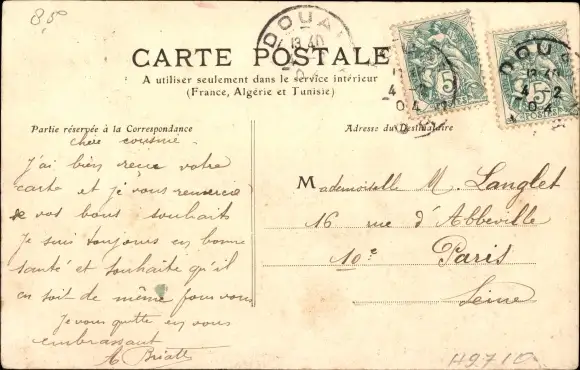 85
DOUAI
13 40
CARTE POSTALE
A utiliser seulement dans le service intérieur
(France, Algérie et Tunisie)
5
POSTES
5
POSTES
DOUAI
13 40
4 - 2
04
Partie réservée à la Correspondance
Adresse du Destinataire
chère cousine
J'ai bien reçue votre
carte et je vous remercie
de vos bons souhaits
Je suis toujours en bonne
santé et souhaite qu'il
en soit de même pour vous
Je vous quitte en vous
embrassant
Mademoiselle M. Langlet
16 rue d'Abbeville
10e Paris
Seine